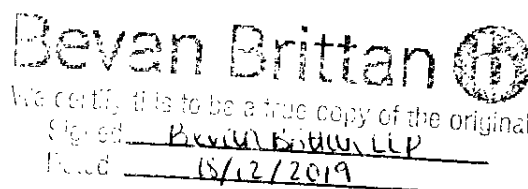 Bevan Brittan
We certify this to be a true copy of the original
Signed Bevan Brittan LLP
Dated 18/12/2019